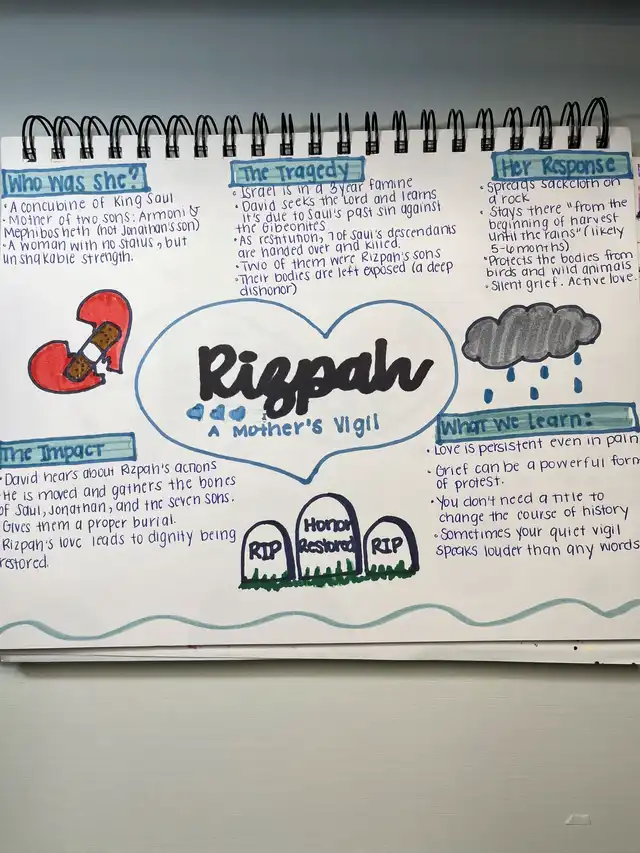 Who Was she?
• A concubine of King Saul
• Mother of two sons: Armoni &
Mephibosheth (not Jonathan's son)
• A woman with no status, but
unshakable strength.
The Tragedy
• Israel is in a 3 year famine
• David seeks the Lord and learns
it's due to Saul's past sin against
the Gibeonites
• As restitution, 7 of Saul's descendants
are handed over and killed.
• Two of them were Rizpah's sons
• Their bodies are left exposed (a deep
dishonor)
Her Response
• Spreads sackcloth on
a rock
• Stays there "from the
beginning of harvest
until the rains" (likely
5-6 months)
• Protects the bodies from
birds and wild animals
• Silent grief. Active love.
Rizpah
A Mother's Vigil
The Impact
• David hears about Rizpah's actions
He is moved and gathers the bones
of Saul, Jonathan, and the seven sons.
Gives them a proper burial.
Rizpah's love leads to dignity being
restored.
RIP
Honor
Restored
RIP
What We Learn:
• Love is persistent even in pain
• Grief can be a powerful form
of protest.
• You don't need a title to
change the course of history
• Sometimes your quiet vigil
speaks louder than any words